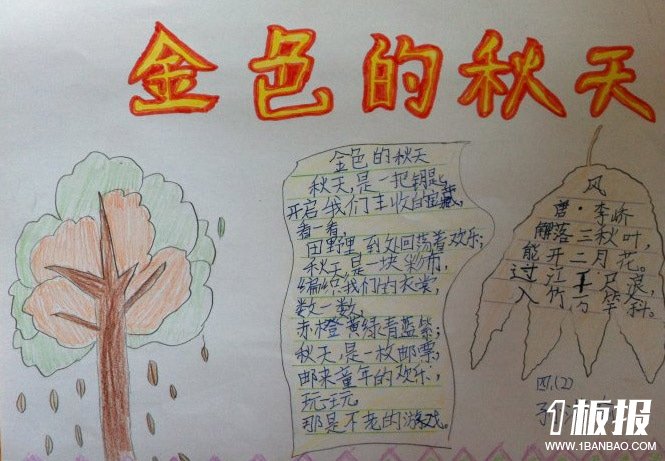 金色的秋天
金色的秋天
秋天,是一把钥匙,
开启我们丰收的宝藏,
看一看,
田野里到处回荡着欢乐;
秋天,是一块彩布,
编织我们的衣裳,
数一数,
赤橙黄绿青蓝紫;
秋天,是一枚邮票,
邮来童年的欢乐,
玩一玩,
那是不老的游戏。
风
唐·李峤
解落三秋叶,
能开二月花。
过江千尺浪,
入竹万竿斜。
四.(2)
1板报
WWW.1BANBAO.COM